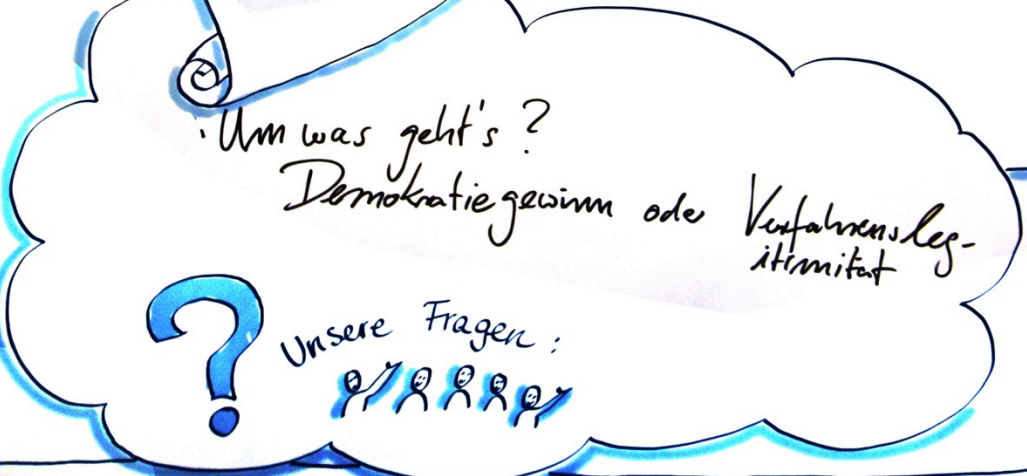 Um was geht's?
Demokratiegewinn oder Verfahrensleg-
itimität
Unsere Fragen: